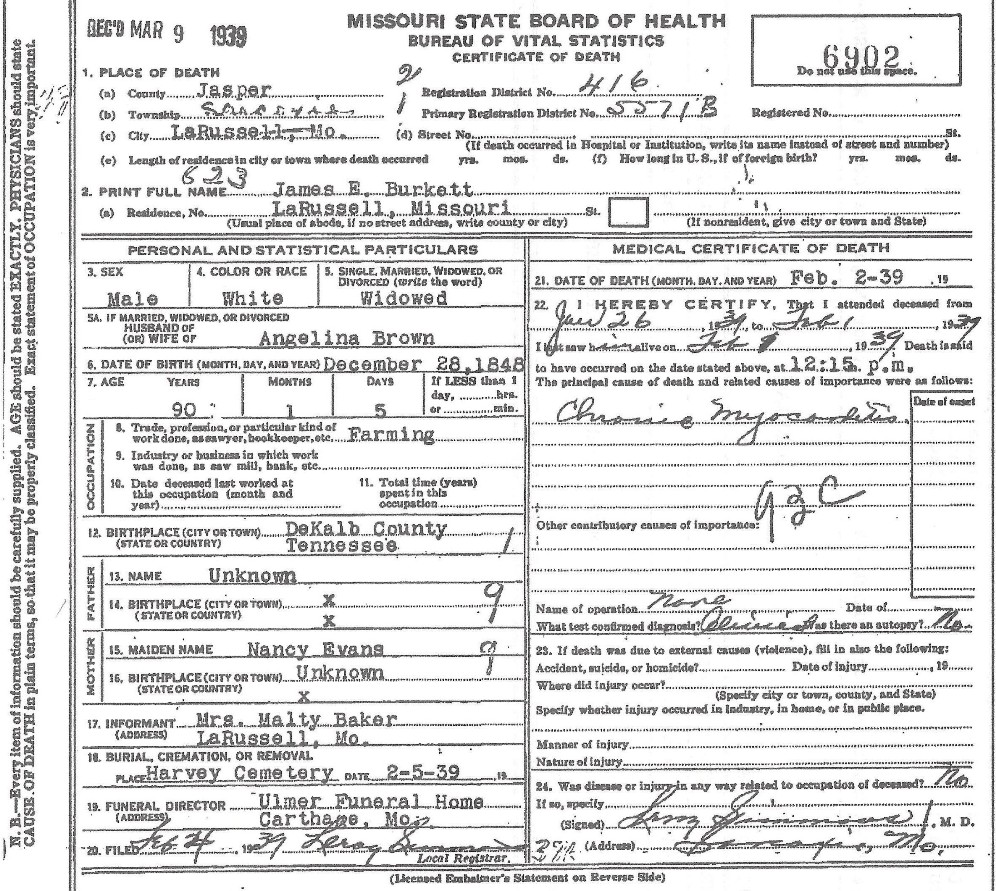 REC'D MAR 9 1939
MISSOURI STATE BOARD OF HEALTH
BUREAU OF VITAL STATISTICS
CERTIFICATE OF DEATH
6902
Do not use this space.
1. PLACE OF DEATH
2
(a) County Jasper
Registration District No. 416
(b) Township Sarcoxie
1
Primary Registration District No. 5571B
Registered No.
(c) City LaRussell, Mo.
(d) Street No. St.
(If death occurred in Hospital or Institution, write its name instead of street and number)
(e) Length of residence in city or town where death occurred yrs. mos. ds. (f) How long in U.S., if of foreign birth? yrs. mos. ds.
623
2. PRINT FULL NAME James E. Burkett
(a) Residence, No. LaRussell, Missouri St.
(Usual place of abode, if no street address, write county or city)
(If nonresident, give city or town and State)
PERSONAL AND STATISTICAL PARTICULARS
3. SEX
Male
4. COLOR OR RACE
White
5. SINGLE, MARRIED, WIDOWED, OR DIVORCED (write the word)
Widowed
5A. IF MARRIED, WIDOWED, OR DIVORCED
HUSBAND OF
(OR) WIFE OF Angelina Brown
6. DATE OF BIRTH (MONTH, DAY, AND YEAR) December 28, 1848
7. AGE YEARS MONTHS DAYS If LESS than 1
day, hrs.
90 1 5 or min.
OCCUPATION
8. Trade, profession, or particular kind of
work done, as sawyer, bookkeeper, etc. Farming
9. Industry or business in which work
was done, as saw mill, bank, etc.
10. Date deceased last worked at
this occupation (month and
year)
11. Total time (years)
spent in this
occupation
12. BIRTHPLACE (CITY OR TOWN) DeKalb County
(STATE OR COUNTRY) Tennessee 1
FATHER
13. NAME Unknown
14. BIRTHPLACE (CITY OR TOWN) x 9
(STATE OR COUNTRY) x
MOTHER
15. MAIDEN NAME Nancy Evans 9
16. BIRTHPLACE (CITY OR TOWN) Unknown
(STATE OR COUNTRY) x
17. INFORMANT Mrs. Malty Baker
(ADDRESS) LaRussell, Mo.
18. BURIAL, CREMATION, OR REMOVAL
PLACE Harvey Cemetery DATE 2-5-39 , 19
19. FUNERAL DIRECTOR Ulmer Funeral Home
(ADDRESS) Carthage, Mo.
20. FILED Feb 4 1939
Local Registrar.
MEDICAL CERTIFICATE OF DEATH
21. DATE OF DEATH (MONTH, DAY, AND YEAR) Feb. 2-39 , 19
22. I HEREBY CERTIFY, That I attended deceased from
Jan 26 , 1939, to Feb 1 , 1939
I last saw him alive on Feb 1939 Death is said
to have occurred on the date stated above, at 12:15 p.m.
The principal cause of death and related causes of importance were as follows:
Date of onset
Chronic Myocarditis
93C
Other contributory causes of importance:
Name of operation None Date of
What test confirmed diagnosis? Clinical Was there an autopsy? No
23. If death was due to external causes (violence), fill in also the following:
Accident, suicide, or homicide? Date of injury , 19
Where did injury occur?
(Specify city or town, county, and State)
Specify whether injury occurred in industry, in home, or in public place.
Manner of injury
Nature of injury
24. Was disease or injury in any way related to occupation of deceased? No
If so, specify
(Signed) , M. D.
(Address) Sarcoxie, Mo.
(Licensed Embalmer's Statement on Reverse Side)
N. B.—Every item of information should be carefully supplied. AGE should be stated EXACTLY. PHYSICIANS should state
CAUSE OF DEATH in plain terms, so that it may be properly classified. Exact statement of OCCUPATION is very important.